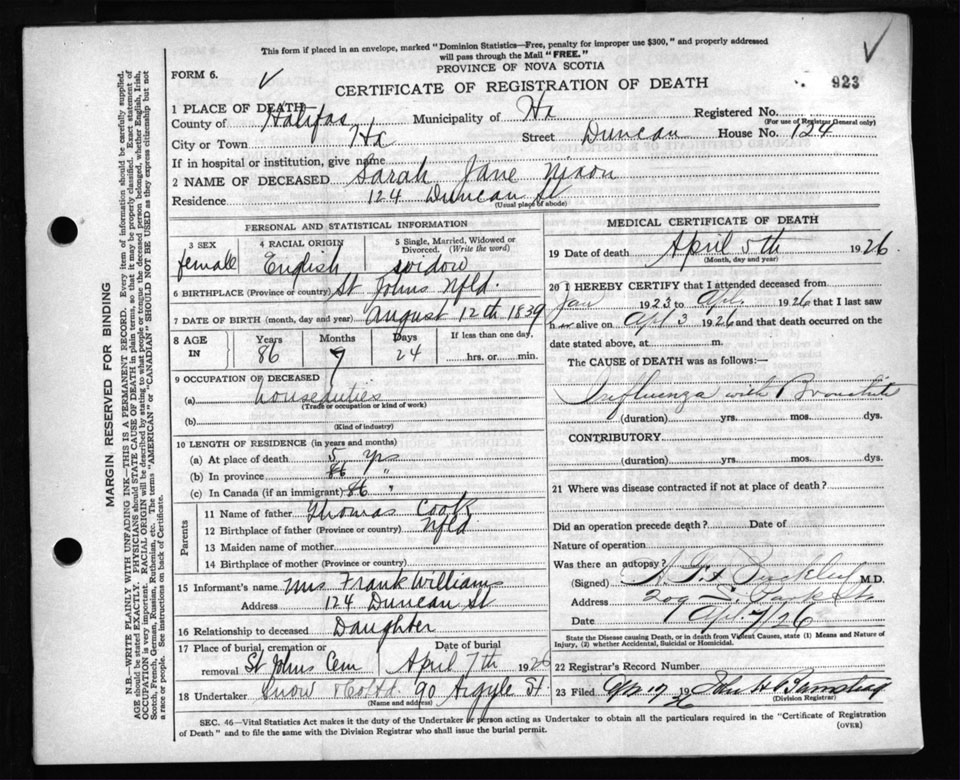 This form if placed in an envelope, marked "Dominion Statistics—Free, penalty for improper use $300," and properly addressed
will pass through the Mail "FREE."
FORM 6.
PROVINCE OF NOVA SCOTIA
923
CERTIFICATE OF REGISTRATION OF DEATH
1 PLACE OF DEATH
County of Halifax Municipality of Hx Registered No.
(For use of Registrar General only)
City or Town Hx Street Duncan House No. 124
If in hospital or institution, give name
2 NAME OF DECEASED Sarah Jane Nixon
Residence 124 Duncan St
(Usual place of abode)
PERSONAL AND STATISTICAL INFORMATION
3 SEX female
4 RACIAL ORIGIN English
5 Single, Married, Widowed or Divorced. (Write the word) widow
6 BIRTHPLACE (Province or country) St Johns Nfld.
7 DATE OF BIRTH (month, day and year) August 12th 1839
8 AGE IN Years 86 Months 7 Days 24 If less than one day, hrs. or min.
9 OCCUPATION OF DECEASED
(a) houseduties
(Trade or occupation or kind of work)
(b)
(Kind of industry)
10 LENGTH OF RESIDENCE (in years and months)
(a) At place of death 5 yrs
(b) In province 86 "
(c) In Canada (if an immigrant) 86 "
Parents
11 Name of father Thomas Cook
12 Birthplace of father (Province or country) Nfld
13 Maiden name of mother
14 Birthplace of mother (Province or country)
15 Informant's name Mrs Frank Williams
Address 124 Duncan St
16 Relationship to deceased Daughter
17 Place of burial, cremation or removal St Johns Cem April 7th 1926
18 Undertaker Snow & Co Ltd. 90 Argyle St.
(Name and address)
MEDICAL CERTIFICATE OF DEATH
19 Date of death April 5th 1926
(Month, day and year)
20 I HEREBY CERTIFY that I attended deceased from
Jan 1923 to Apr. 1926 that I last saw
h er alive on Apl 3 1926 and that death occurred on the
date stated above, at m.
The CAUSE of DEATH was as follows:—
Influenza with Bronchitis
(duration) yrs. mos. dys.
CONTRIBUTORY
(duration) yrs. mos. dys.
21 Where was disease contracted if not at place of death?
Did an operation precede death? Date of
Nature of operation
Was there an autopsy?
(Signed) M.D.
Address 209 S. Park St
Date Apr 7/26
State the Disease causing Death, or in death from Violent Causes, state (1) Means and Nature of
Injury, (2) whether Accidental, Suicidal or Homicidal.
22 Registrar's Record Number
23 Filed 19 26
(Division Registrar)
SEC. 46—Vital Statistics Act makes it the duty of the Undertaker or person acting as Undertaker to obtain all the particulars required in the "Certificate of Registration
of Death" and to file the same with the Division Registrar who shall issue the burial permit.
(OVER)
MARGIN RESERVED FOR BINDING
N.B.—WRITE PLAINLY WITH UNFADING INK—THIS IS A PERMANENT RECORD. Every item of information should be carefully supplied.
AGE should be stated EXACTLY. PHYSICIANS should STATE CAUSE OF DEATH in plain terms, so that it may be properly classified. Exact statement of
OCCUPATION is very important. RACIAL ORIGIN will be described by stating to what people or tongue the deceased person belonged, whether English, Irish,
Scotch, French, German, Russian, Ruthenian, etc. The terms "AMERICAN" or "CANADIAN" SHOULD NOT BE USED as they express citizenship but not
a race or people. See instructions on back of Certificate.